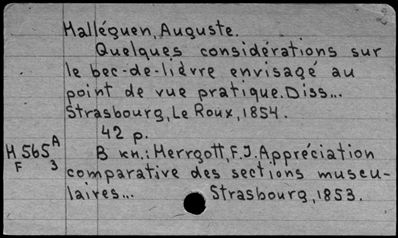 Halléguen, Auguste.
Quelques considérations sur
le bec-de-lièvre envisagé au
point de vue pratique. Diss...
Strasbourg, Le Roux, 1854.
42 p.
H 565 A
F 3
В кн.: Herrgott, F.J. Appréciation
comparative des sections muscu-
laires... Strasbourg, 1853.